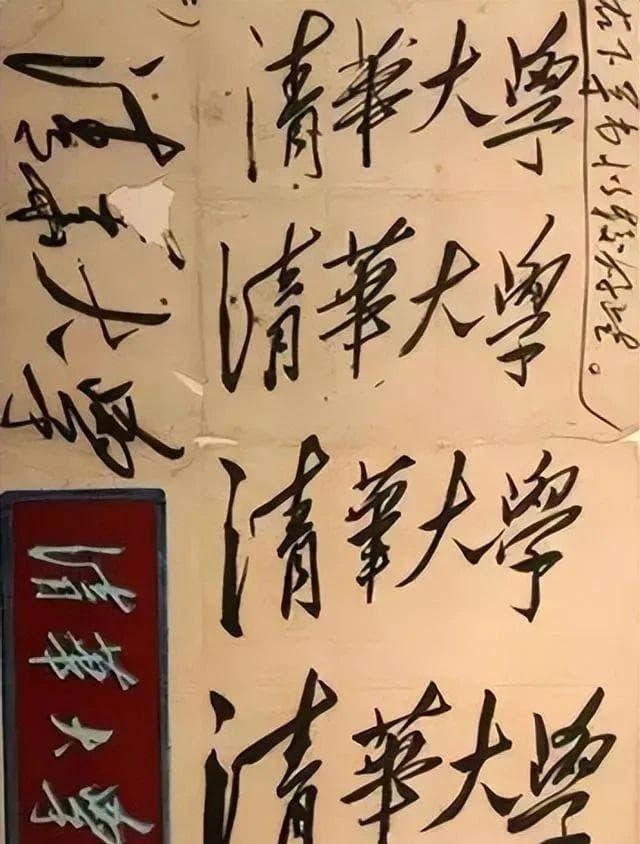 清華大學
清華大學
清華大學
清華大學
清華大學
清華大學
右下草书小些